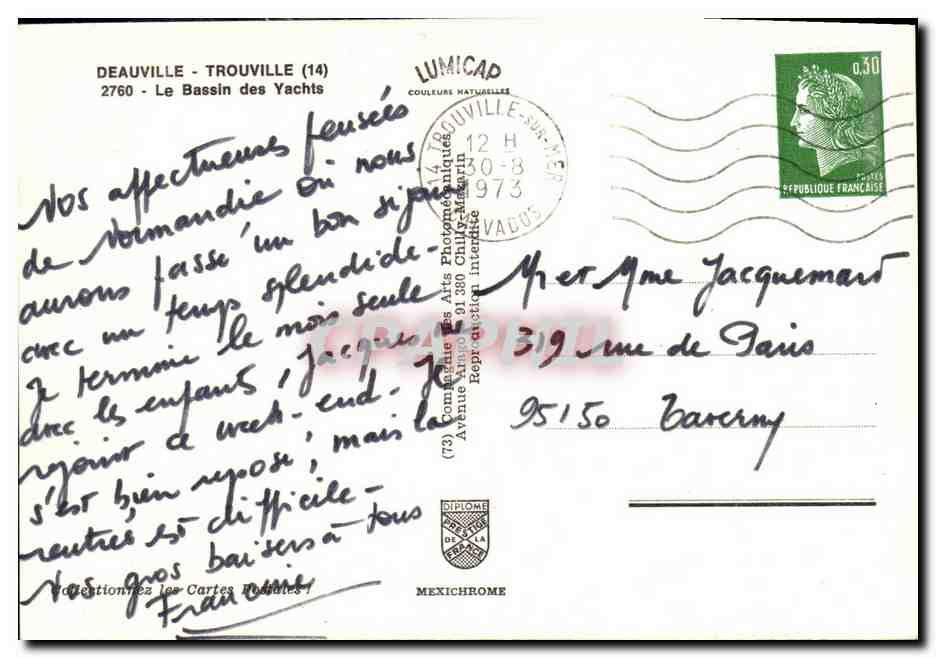 DEAUVILLE - TROUVILLE (14)
2760 - Le Bassin des Yachts
LUMICAP
COULEURS NATURELLES
14 TROUVILLE-SUR-MER
12 H
30-8
1973
CALVADOS
0,30
POSTES
REPUBLIQUE FRANÇAISE
Nos affectueuses pensées
de Normandie où nous
aurons passé un bon séjour
avec un temps splendide -
Je termine le mois seule
avec les enfants, Jacques me
rejoint ce week-end. Il
s'est bien reposé, mais la
rentrée est difficile -
Nos gros baisers à tous
Francine
Mr et Mme Jacquemard
319 rue de Paris
95150 Taverny
(73) Compagnie des Arts Photomécaniques
Avenue Arago 91 380 Chilly-Mazarin
Reproduction interdite
CPAPHIL
DIPLOME
PRESTIGE
DE LA
FRANCE
MEXICHROME
Collectionnez les Cartes Postales !